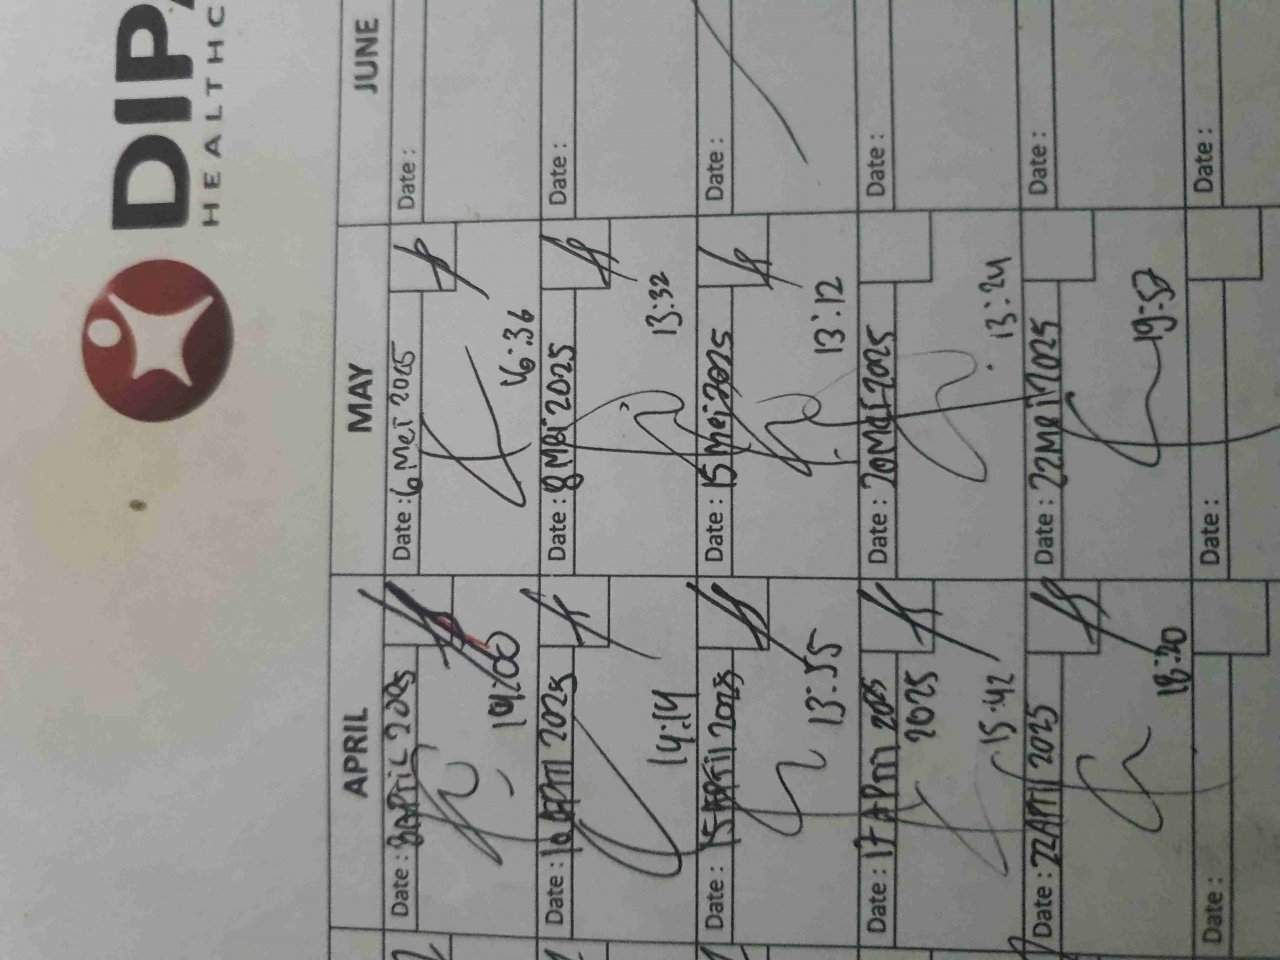 DIPA
HEALTHC
APRIL MAY JUNE
Date : 8 APriL 2025
14:00
Date : 6 Mei 2025
16:36
Date :
Date : 10 APril 2025
14:14
Date : 8 Mei 2025
13:32
Date :
Date : 15 APril 2025
13:55
Date : 15 Mei 2025
13:12
Date :
Date : 17 APril 2025
2025
15:42
Date : 20 Mei 2025
13:24
Date :
Date : 22 APril 2025
18:20
Date : 22 Mei 2025
19:57
Date :
Date :
Date :
Date :